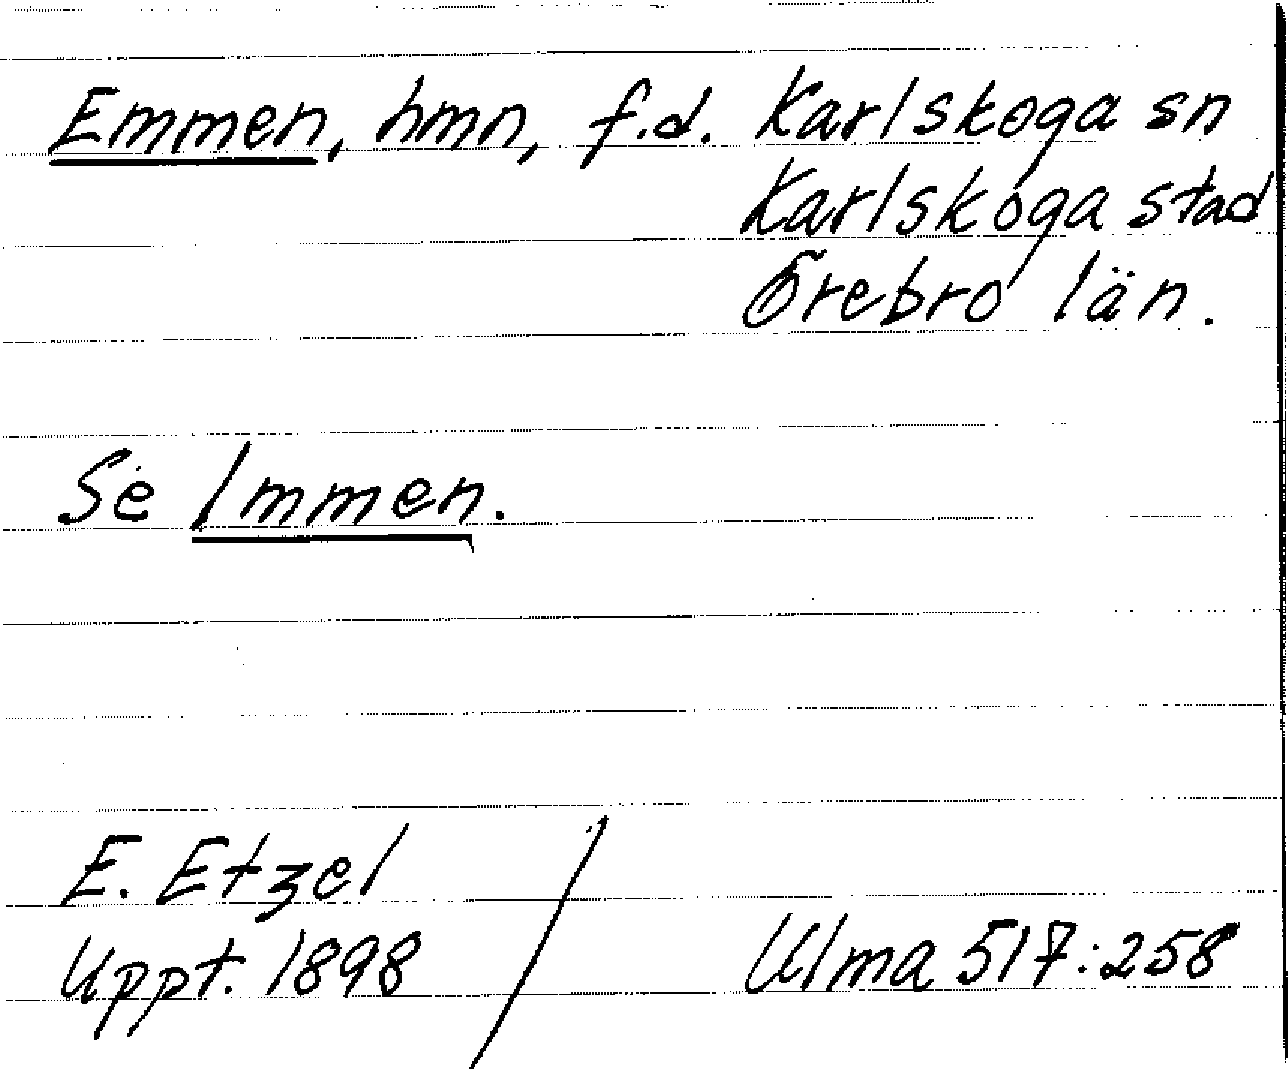 Emmen, hmn, f.d. Karlskoga sn
Karlskoga stad
Örebro län.
Se Immen.
E. Etzel
Uppt. 1898
Ulma 517:258